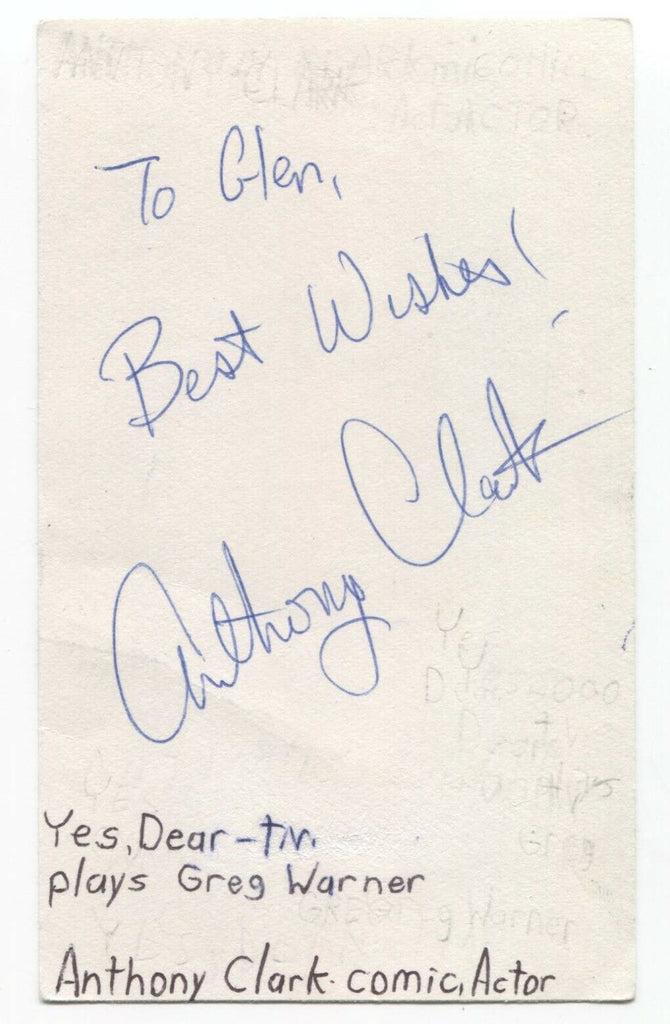 To Glen,
Best Wishes!
Anthony Clark
Yes, Dear - t.v.
plays Greg Warner
Anthony Clark. comic, Actor